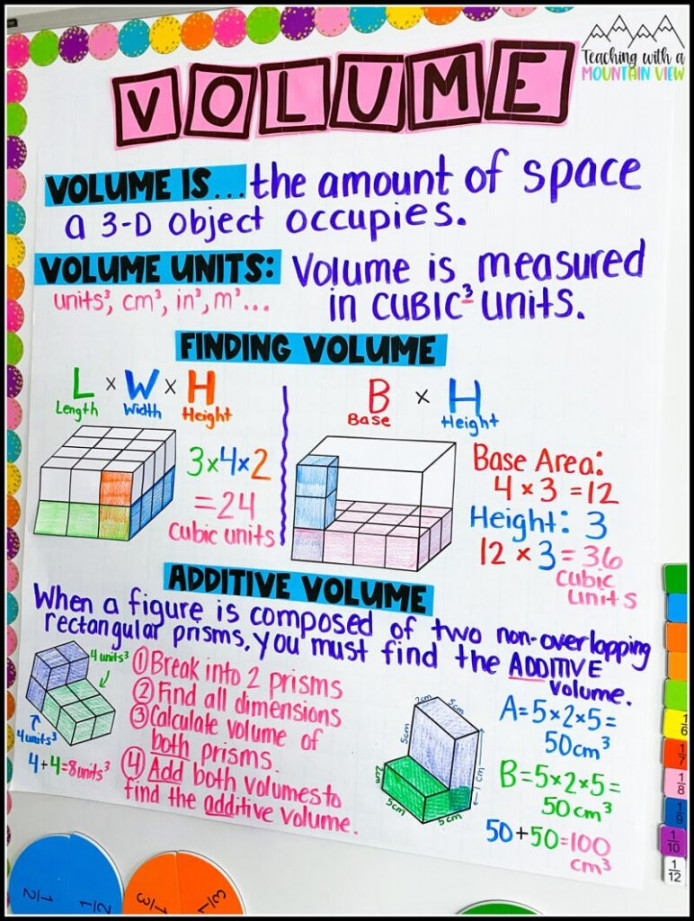 Teaching with a
MOUNTAIN VIEW
VOLUME
VOLUME IS... the amount of space
a 3-D object occupies.
VOLUME UNITS: Volume is measured
units³, cm³, in³, m³... in CUBIC³ units.
FINDING VOLUME
L × W × H
Length Width Height
3×4×2
=24
Cubic units
B × H
Base Height
Base Area:
4 × 3 =12
Height: 3
12 × 3 = 36
cubic
units
ADDITIVE VOLUME
When a figure is composed of two non-overlapping
rectangular prisms, you must find the ADDITIVE
volume.
4 units³
4 units³
4+4=8units³
① Break into 2 prisms
② Find all dimensions
③ Calculate volume of
both prisms.
④ Add both volumes to
find the additive volume.
2cm 5cm
5cm
2cm
5cm 5cm
A=5×2×5=
50cm³
B=5×2×5=
50 cm³
50+50=100
cm³
1/6
1/7
1/8
1/9
1/10
1/12
1/2 1/2
1/3 1/3